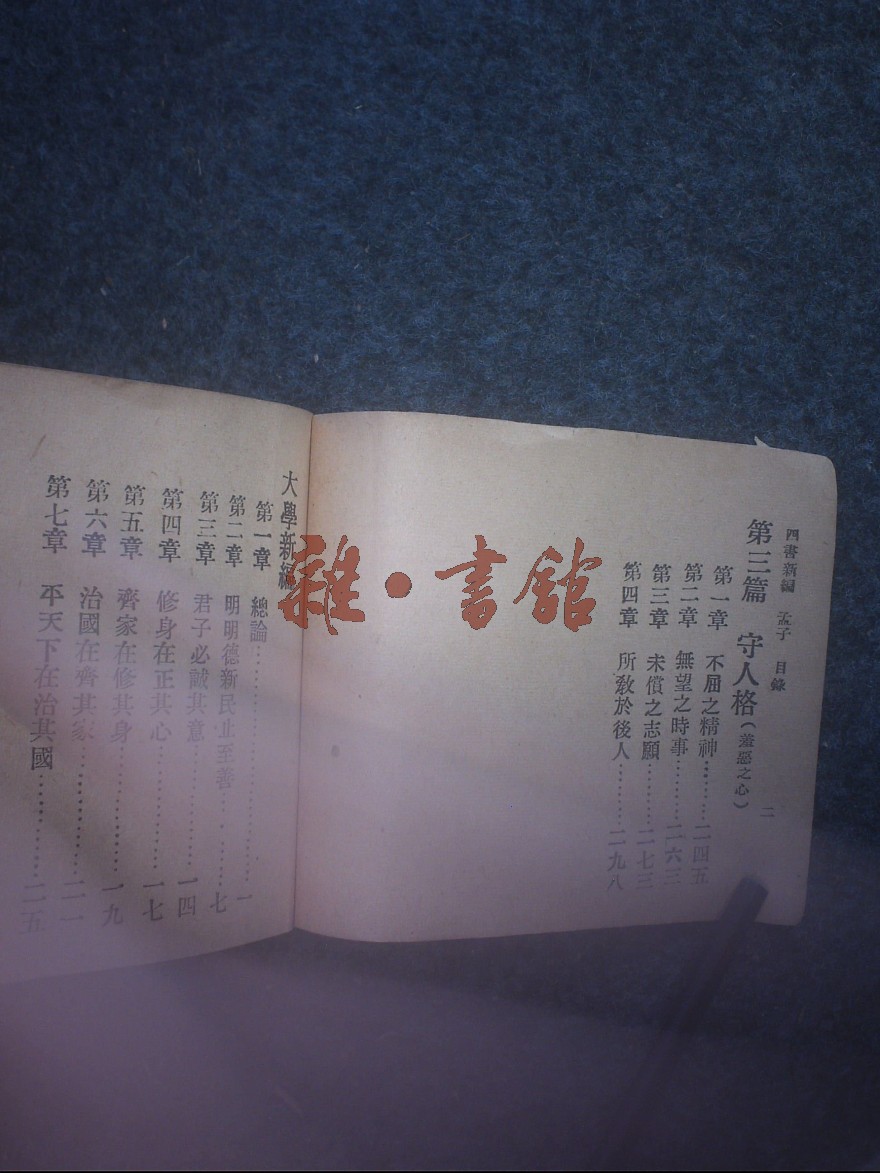 四書新編 孟子 目錄 二
第三篇 守人格(羞惡之心)
第一章 不屈之精神………二四五
第二章 無望之時事………二六三
第三章 未償之志願………二七三
第四章 所教於後人………二九八
大學新編
第一章 總論………一
第二章 明明德新民止至善………七
第三章 君子必誠其意………一四
第四章 修身在正其心………一七
第五章 齊家在修其身………一九
第六章 治國在齊其家………二一
第七章 平天下在治其國………二五
雜·書館